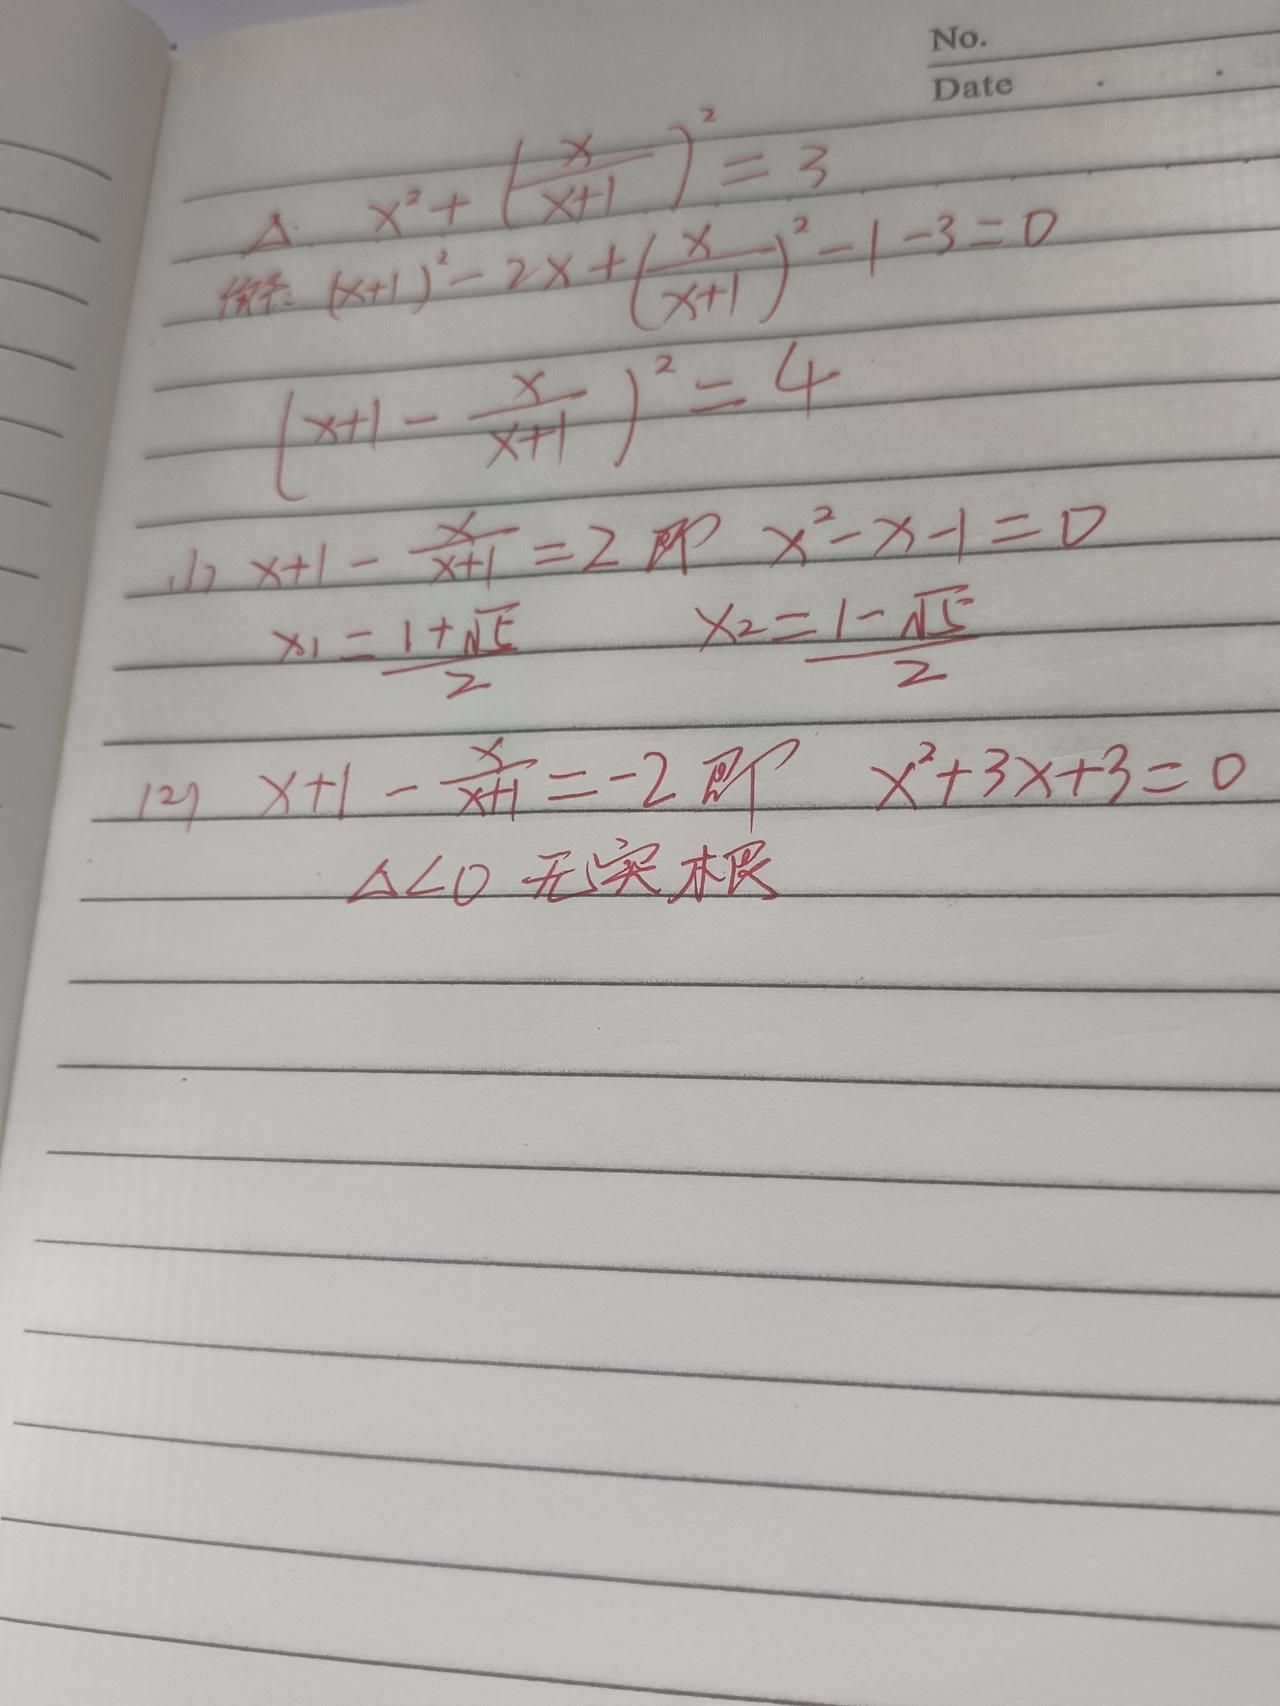 No.
Date
△. x² + (x/(x+1))² = 3
解: (x+1)² - 2x + (x/(x+1))² - 1 - 3 = 0
(x+1 - x/(x+1))² = 4
(1) x+1 - x/(x+1) = 2 即 x² - x - 1 = 0
x₁ = (1+√5)/2 x₂ = (1-√5)/2
(2) x+1 - x/(x+1) = -2 即 x² + 3x + 3 = 0
△<0 无实根